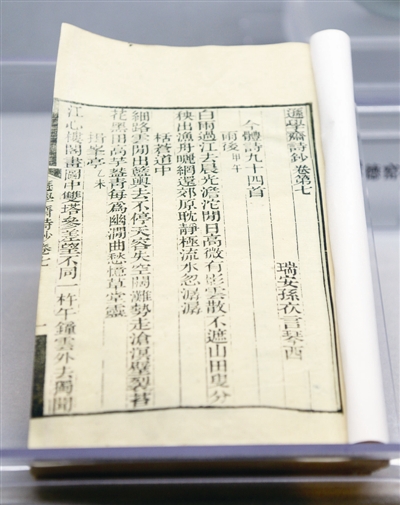 遜學齋詩鈔卷第七
瑞安孫衣言琴酉
今體詩九十四首
雨後甲午
白雨過江去晨光澹沱閒日高微有影雲散不遮山田叟分
秧出漁舟曬網還郊原耽靜極流水忽潺潺
栝蒼道中
細路雲間出藍輿去不停天容失空闊灘勢走滄溟壁裂苔
花黑田高芋葉青每為幽澗曲愁憶草堂靈
揖峯亭乙未
江心樓閣畫圖中雙塔參差望不同一杵午鐘雲外去隔
遜學齋詩鈔卷七
一